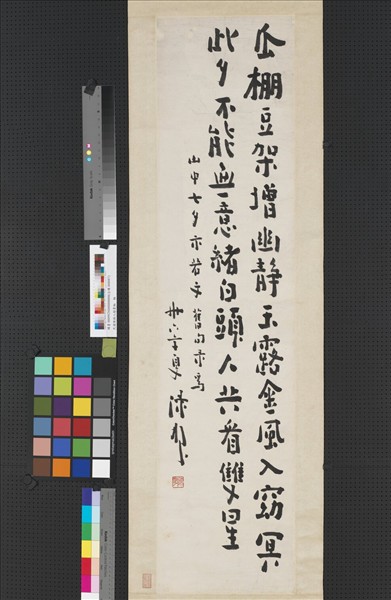 瓜棚豆架增幽静玉露金風入窈冥
此夕不能無意緒白頭人共看雙星
山中七夕示若文 舊句求寫
卅六年夏